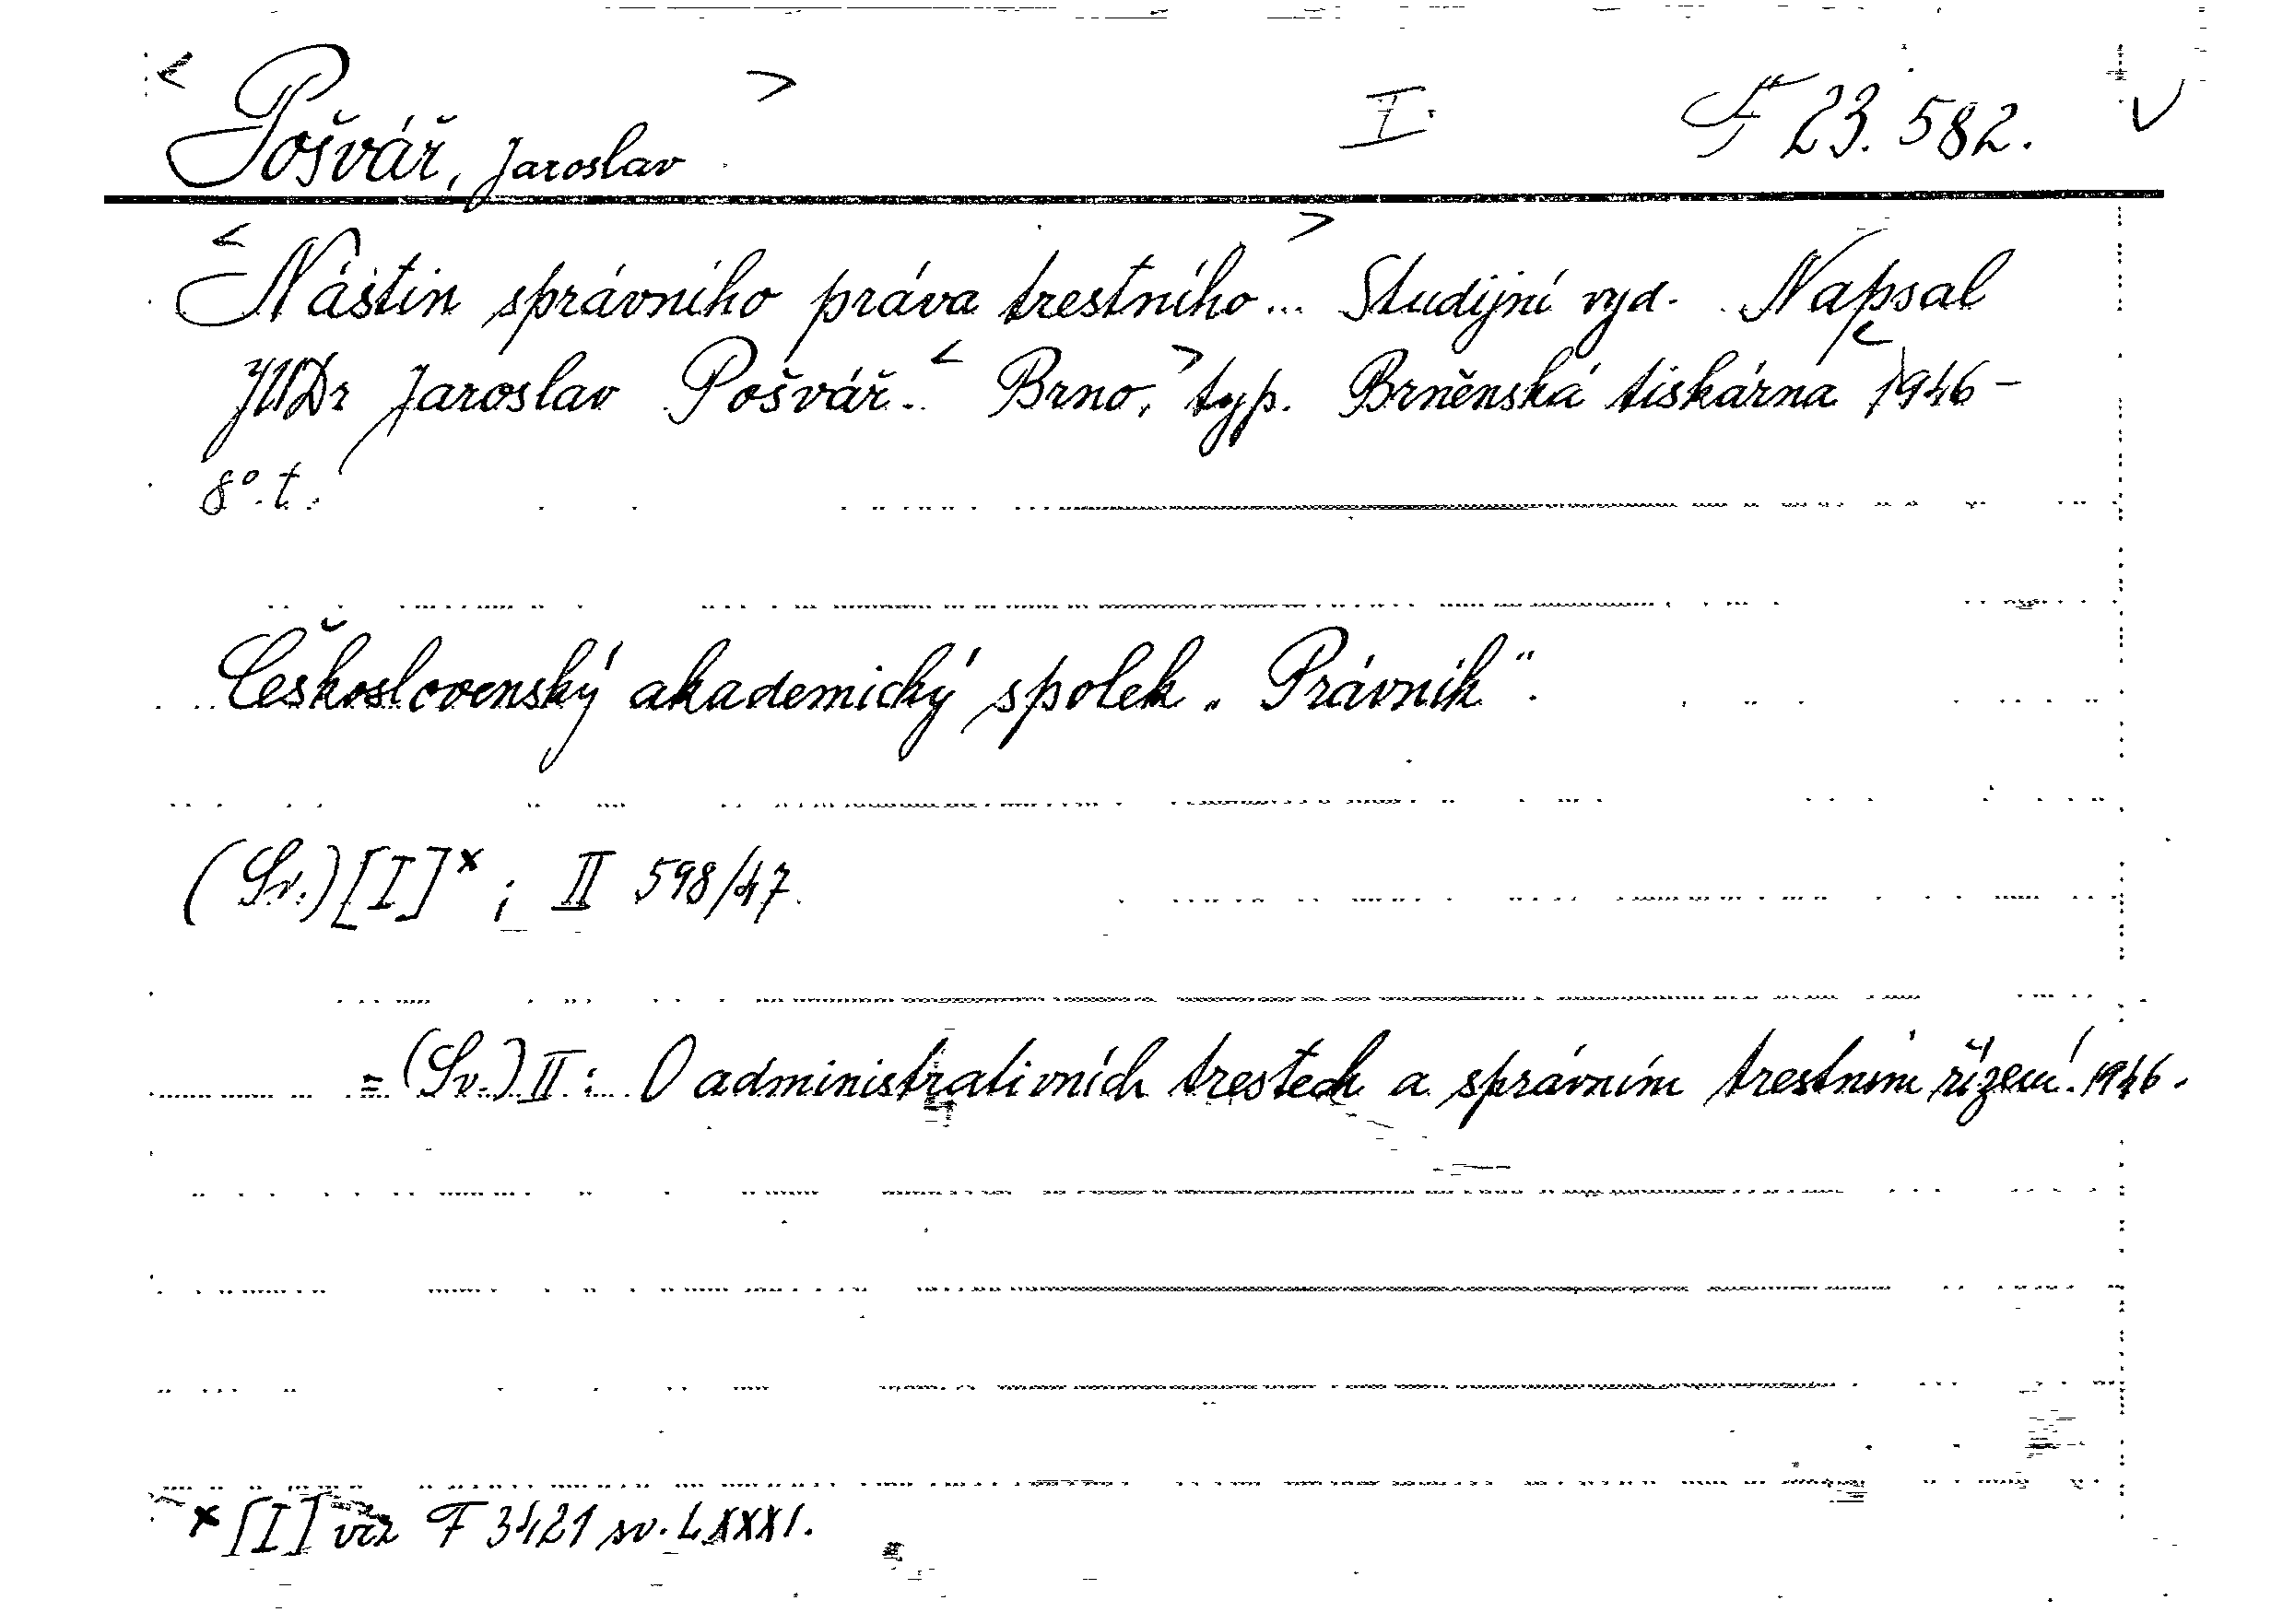 < Pošvář, Jaroslav > I. F 23.582. V
< Nástin správního práva trestního > ... Studijní vyd. Napsal
JUDr Jaroslav Pošvář. < Brno, > typ. Brněnská tiskárna < 1946 -
8°. t.
Československý akademický spolek „Právník".
(Sv.) [I]x ; II 598/47.
= (Sv.) II: O administrativních trestech a správním trestním řízení. 1946.
x [I] viz F 3421 sv. LXXXI.